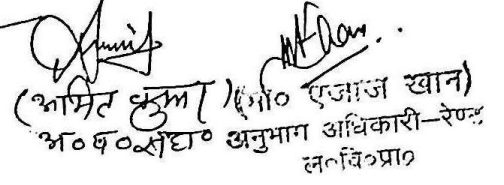 (अमित कुमार) (मो० एजाज खान)
अ०ब०संघ० अनुभाग अधिकारी-रेण्ट
ल०वि०प्रा०